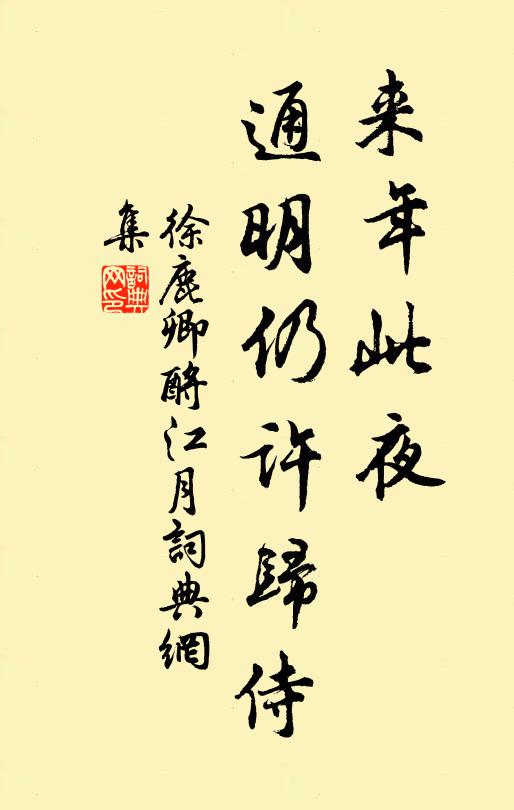 来年此夜
通明仍许歸侍
徐鹿卿酹江月詞典網
集
詞典網印